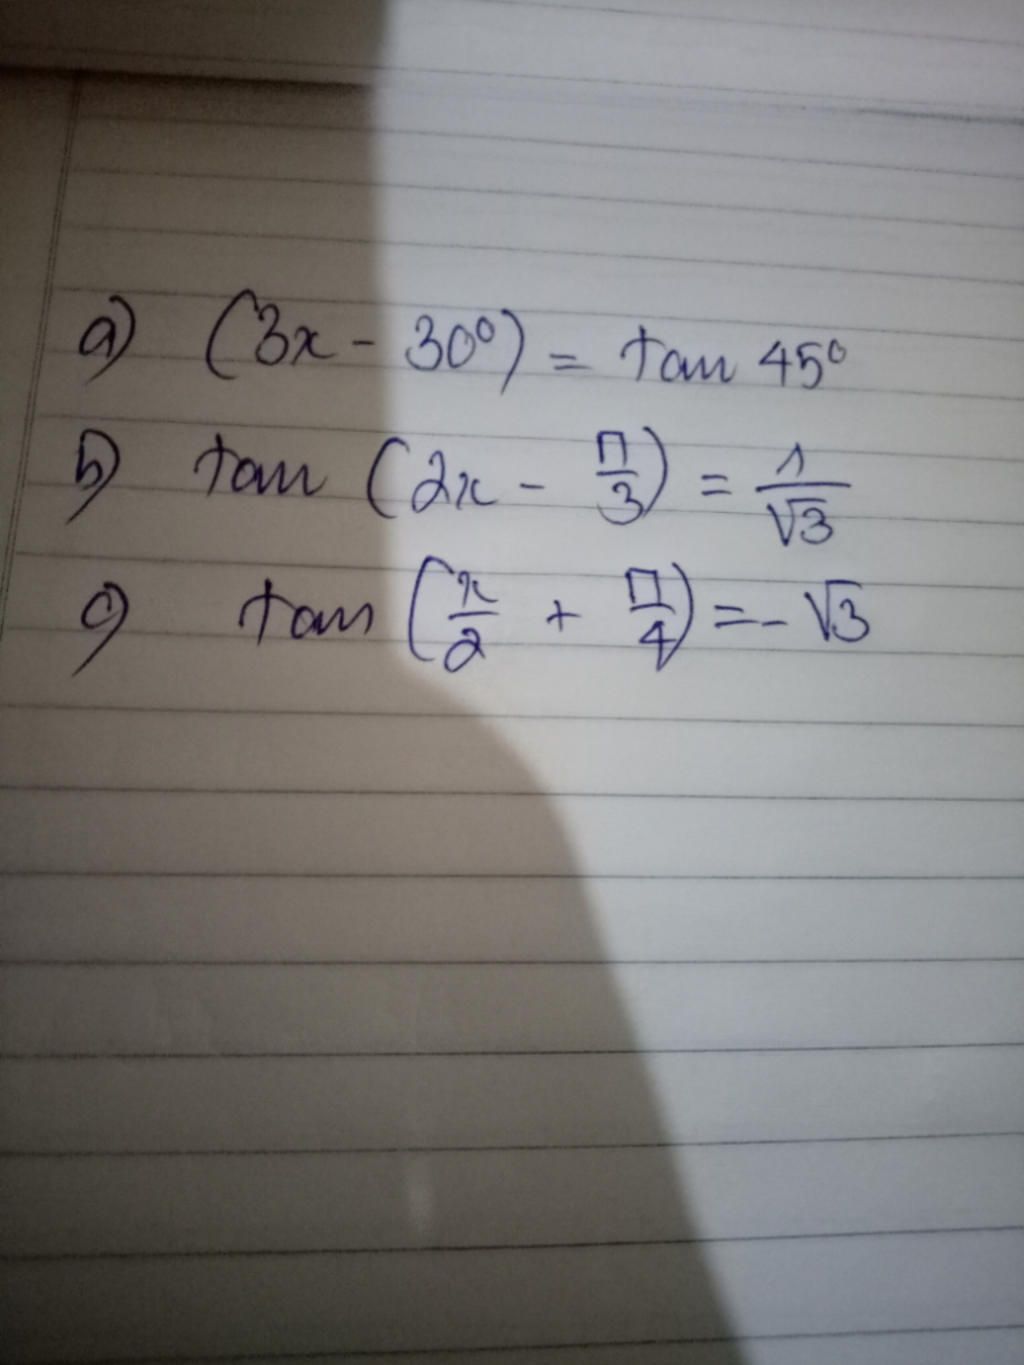 a) (3x - 30⁰) = tan 45⁰
b) tan (2x - π/3) = 1/√3
c) tan (x/2 + π/4) = - √3